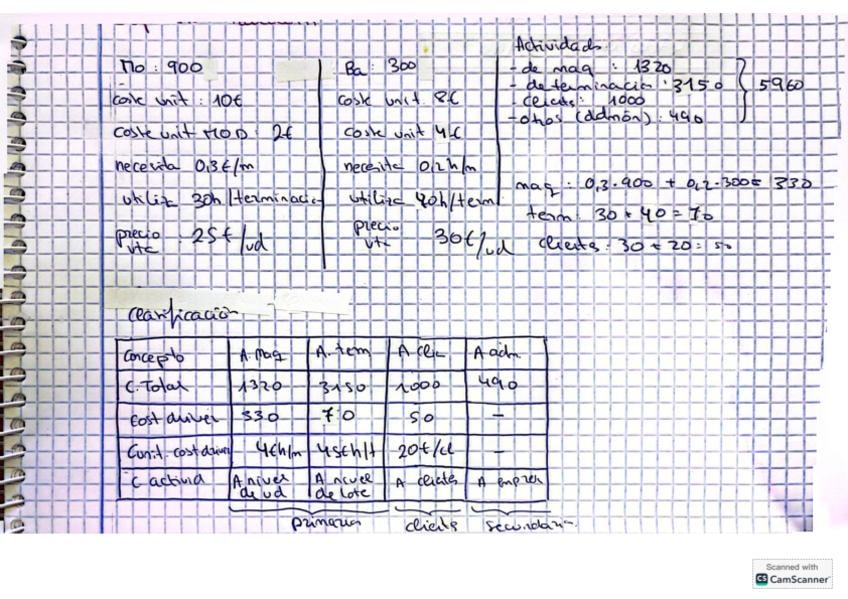 Mo : 900
coste unit : 10€
coste unit MOD : 2€
necesita 0,3€/m
utiliz 30h/terminacio
precio vta : 25€/ud
Ba : 300
coste unit 8€
coste unit 4€
necesita 0,2h/m
utiliza 40h/term
precio vta 30€/ud
Actividads
- de maq : 1320
- de terminacio : 3150
- clientes : 1000
- otros (admón) : 490
5960
maq : 0,3·900 + 0,2·300= 330
term : 30 + 40 = 70
clients : 30 + 20 = 50
Clasificación
Concepto A. Maq A. term A clie A adm
C. Total 1320 3150 1000 490
Cost driver 330 70 50 -
C unit. cost driver 4€h/m 45€h/t 20€/cl -
C activid A nivel de ud A nivel de lote A clientes A empres
primarias clients secundari
Scanned with
CS CamScanner